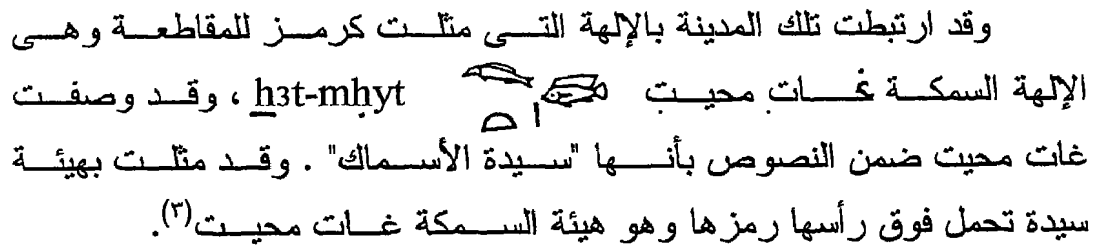 وقد ارتبطت تلك المدينة بالإلهة التى مثلت كرمز للمقاطعة وهى
الإلهة السمكة غات محيت ẖꜣt-mḥyt ، وقد وصفت
غات محيت ضمن النصوص بأنها "سيدة الأسماك" . وقد مثلت بهيئة
سيدة تحمل فوق رأسها رمزها وهو هيئة السمكة غات محيت(٣).